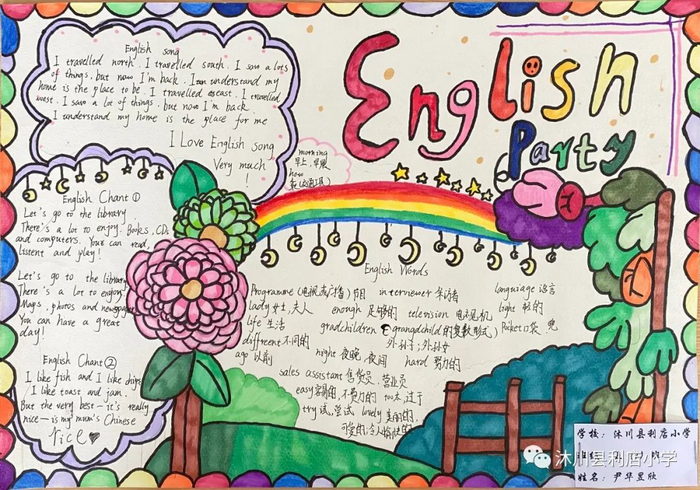 English song
I travelled north. I travelled south. I saw a lots
of things. but now I'm back. I understand my
home is the place to be. I travelled east. I travelled
west. I saw a lot of things. but now I'm back.
I understand my home is the place for me
I Love English song
Very much
!
English Party
morning
早上,早晨
how
English Chant ①
Let's go to the library.
There's a lot to enjoy. Books, CDs
and computers. Your can read,
listent and play!
Let's go to the library
There's a lot to enjoy.
Maps, photos and newspapers
You can have a great
day!
English Chant ②
I like fish and I like chips
I like toast and jam.
But the very best—it's really
nice—is my mum's Chinese
rice
English Words
Programme (电视或广播) 节目 interviewer 采访者 language 语言
lady 女士,夫人 enough 足够的 television 电视机 light 轻的
life 生活 gradchildren (grangdchild的复数形式) Pocket 口袋, 兜
different 不同的 外孙子;外孙女
ago 以前 night 夜晚,夜间 hard 努力的
sales assistant 售货员,营业员
easy 容易的,不费力的 too 太,过于
try 试,尝试 lovely 美丽的,
可爱的;令人愉快的
学校:沐川县利店小学
沐川县利店小学
姓名:尹华昱欣